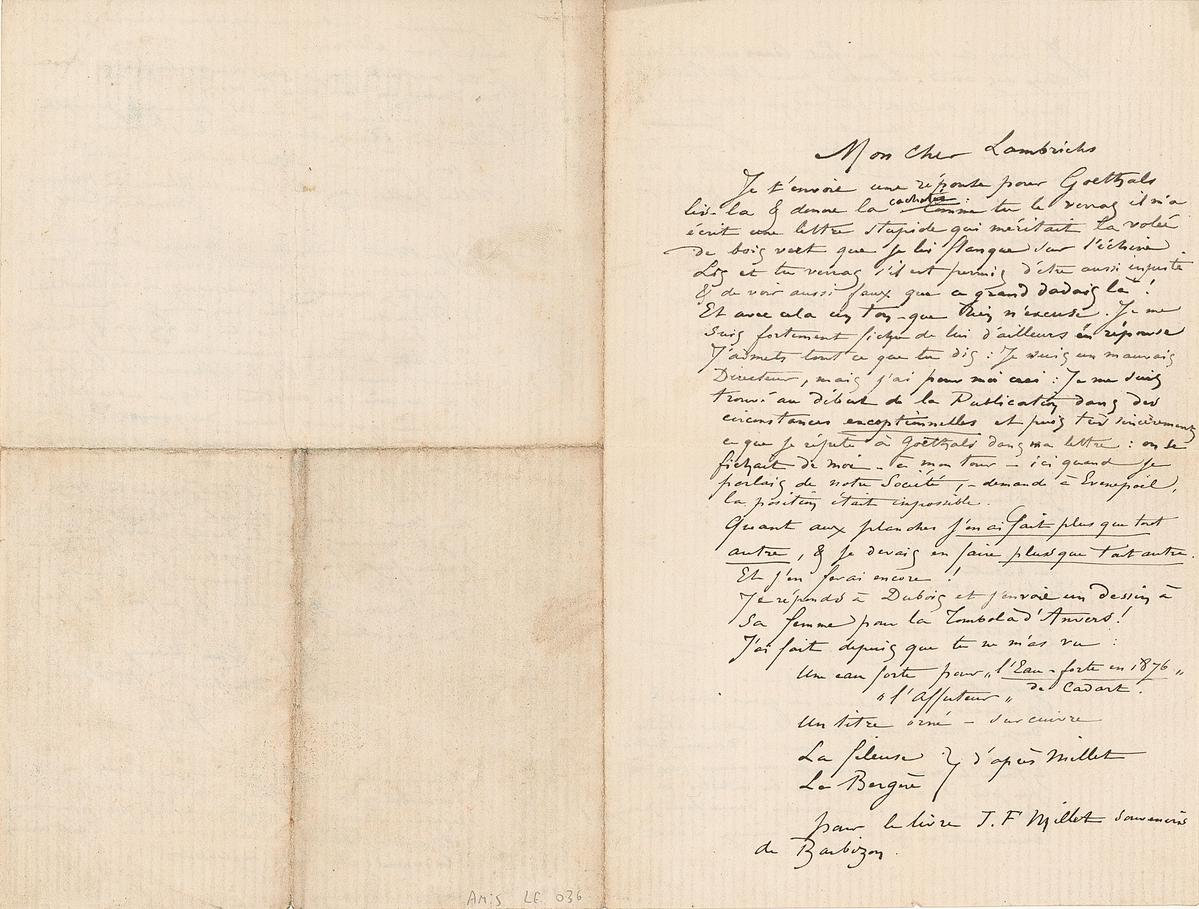 Mon cher Lambrichs
Je t'envoie une réponse pour Goethals
lis-la & donne la cachetée : comme tu le verras il m'a
écrit une lettre stupide qui méritait la volée
de bois vert que je lui flanque sur l'échine
Lis et tu verras s'il est permis d'être aussi injuste
& de voir aussi faux que ce grand dadais là !
Et avec cela un ton que rien n'excuse. Je me
suis fortement fichu de lui d'ailleurs en réponse
J'admets tout ce que tu dis : Je suis un mauvais
Directeur, mais j'ai pour moi ceci : Je me suis
trouvé au début de la Publication dans des
circonstances exceptionnelles et puis très sincèrement
ce que je répète à Goethals dans ma lettre : on se
fichait de moi - à mon tour - ici quand je
parlais de notre Société, - demande à Evenepoel,
la position était impossible.
Quant aux planches j'en ai fait plus que tout
autre, & je devais en faire plus que tout autre.
Et j'en ferai encore !
Je réponds à Dubois et j'envoie un dessin à
sa femme pour la Tombola d'Anvers !
J'ai fait depuis que tu ne m'as vu :
Une eau forte pour „l'Eau-forte en 1876„
"l'Affuteur„ de Cadart.
Un titre orné - sur cuivre
La fileuse } d'après Millet
La Bergère
pour le livre J. F Millet Souvenirs
de Barbizon.
AMIS LE 036